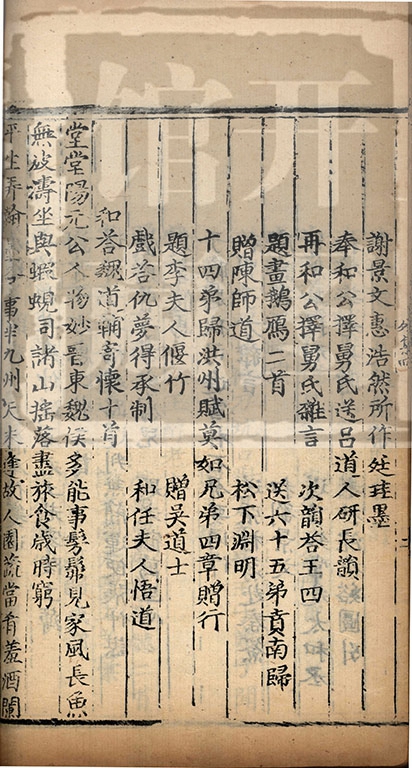 謝景文惠浩然所作廷珪墨
奉和公擇舅氏送呂道人研長韻
再和公擇舅氏雜言 次韻荅王四
題畫鵝鴈二首 送六十五弟賁南歸
贈陳師道 松下淵明
十四弟歸洪州賦莫如兄弟四章贈行
題李夫人偃竹 贈吳道士
戲荅仇夢得承制 和任夫人悟道
和荅魏道輔寄懷十首
堂堂陽元公人物妙晉東魏侯多能事髣髴見家風長魚
無波濤坐與蝦蜆司諸山搖落盡旅食歲時窮
平生弄翰 事半九州天末逢故人園蔬當肴羞酒闌